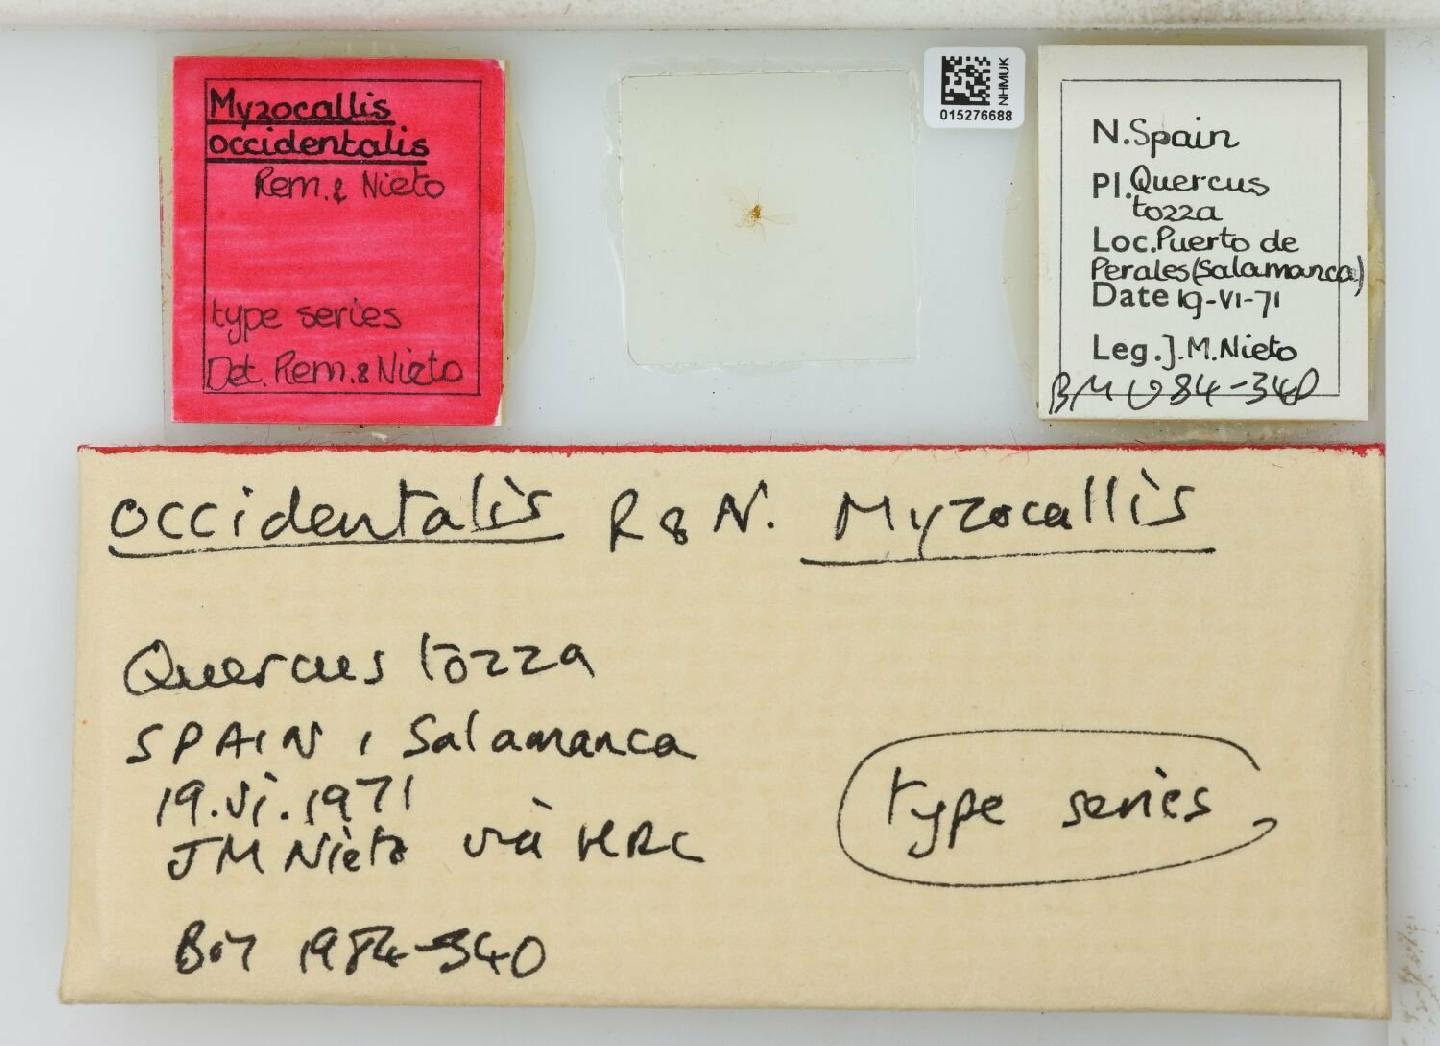 Myzocallis
occidentalis
Rem. & Nieto
type series
Det. Rem. & Nieto
NHMUK
015276688
N. Spain
Pl. Quercus
tozza
Loc. Puerto de
Perales (Salamanca)
Date 19-VI-71
Leg. J. M. Nieto
BM 1984-340
occidentalis R & N. Myzocallis
Quercus tozza
SPAIN, Salamanca
19.vi.1971
JM Nieto via HRL
type series
BM 1984-340